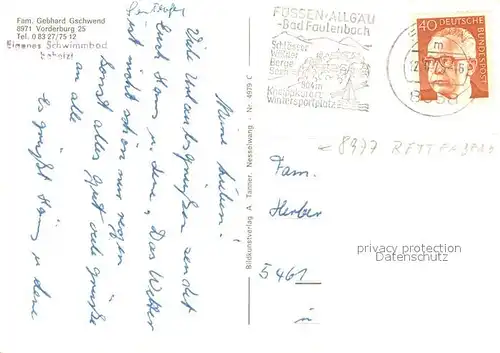 Fam. Gebhard Gschwend
8971 Vorderburg 25
Tel. 0 83 27/75 12
Eigenes Schwimmbad
beheizt
Meine Lieben!
Viele Urlaubsgrüße sendet
Euch Hans u. dene. Das Wetter
ist nicht schön nur regen
sonst alles gut viele grüße
an alle
es grüßt Hans u dene
Bildkunstverlag A. Tanner, Nesselwang - Nr. 4979 C
FÜSSEN-ALLGÄU
-Bad Faulenbach
Schlösser
Wälder
Berge
Seen
804m
Kneippkurort
Wintersportplatz
40
DEUTSCHE
BUNDESPOST
8977 RETTENBERG
Fam.
Herber
5461
privacy protection
Datenschutz